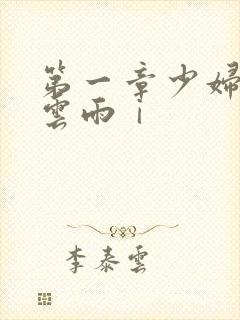 第一章少婦
雲雨｜
李泰雲